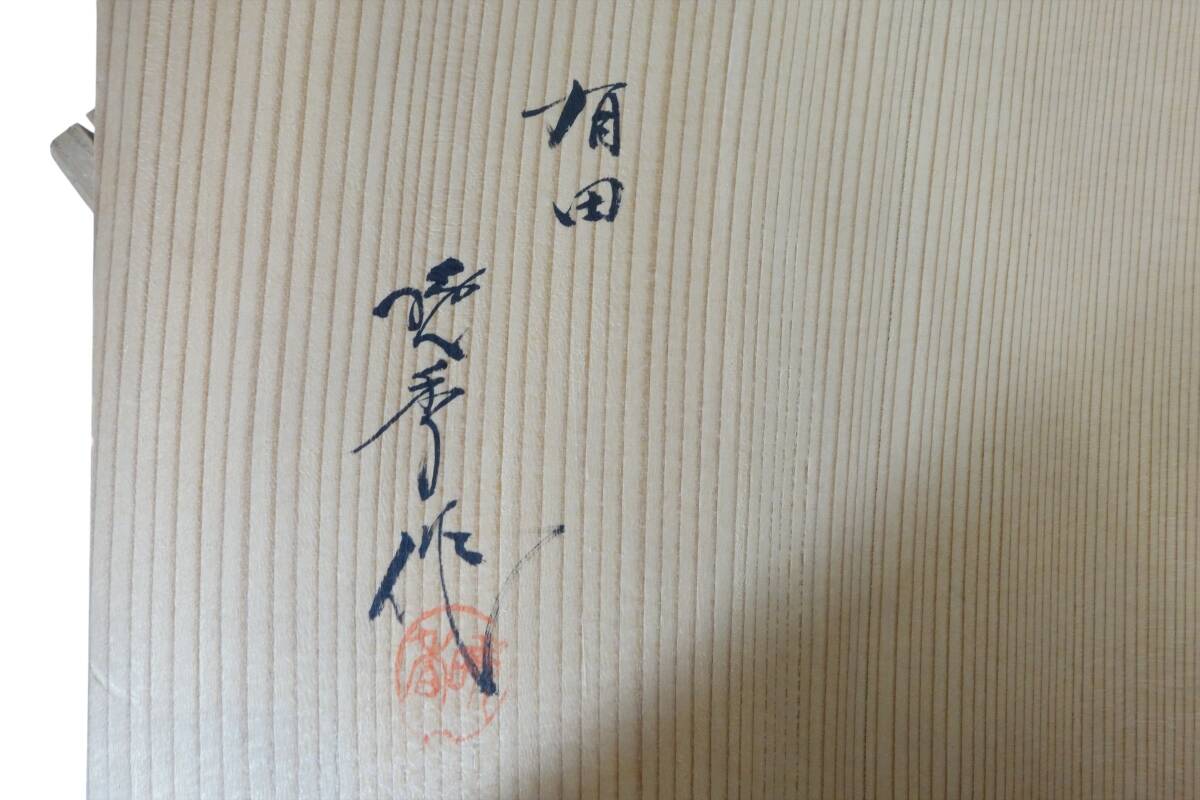 有田
暁秀作